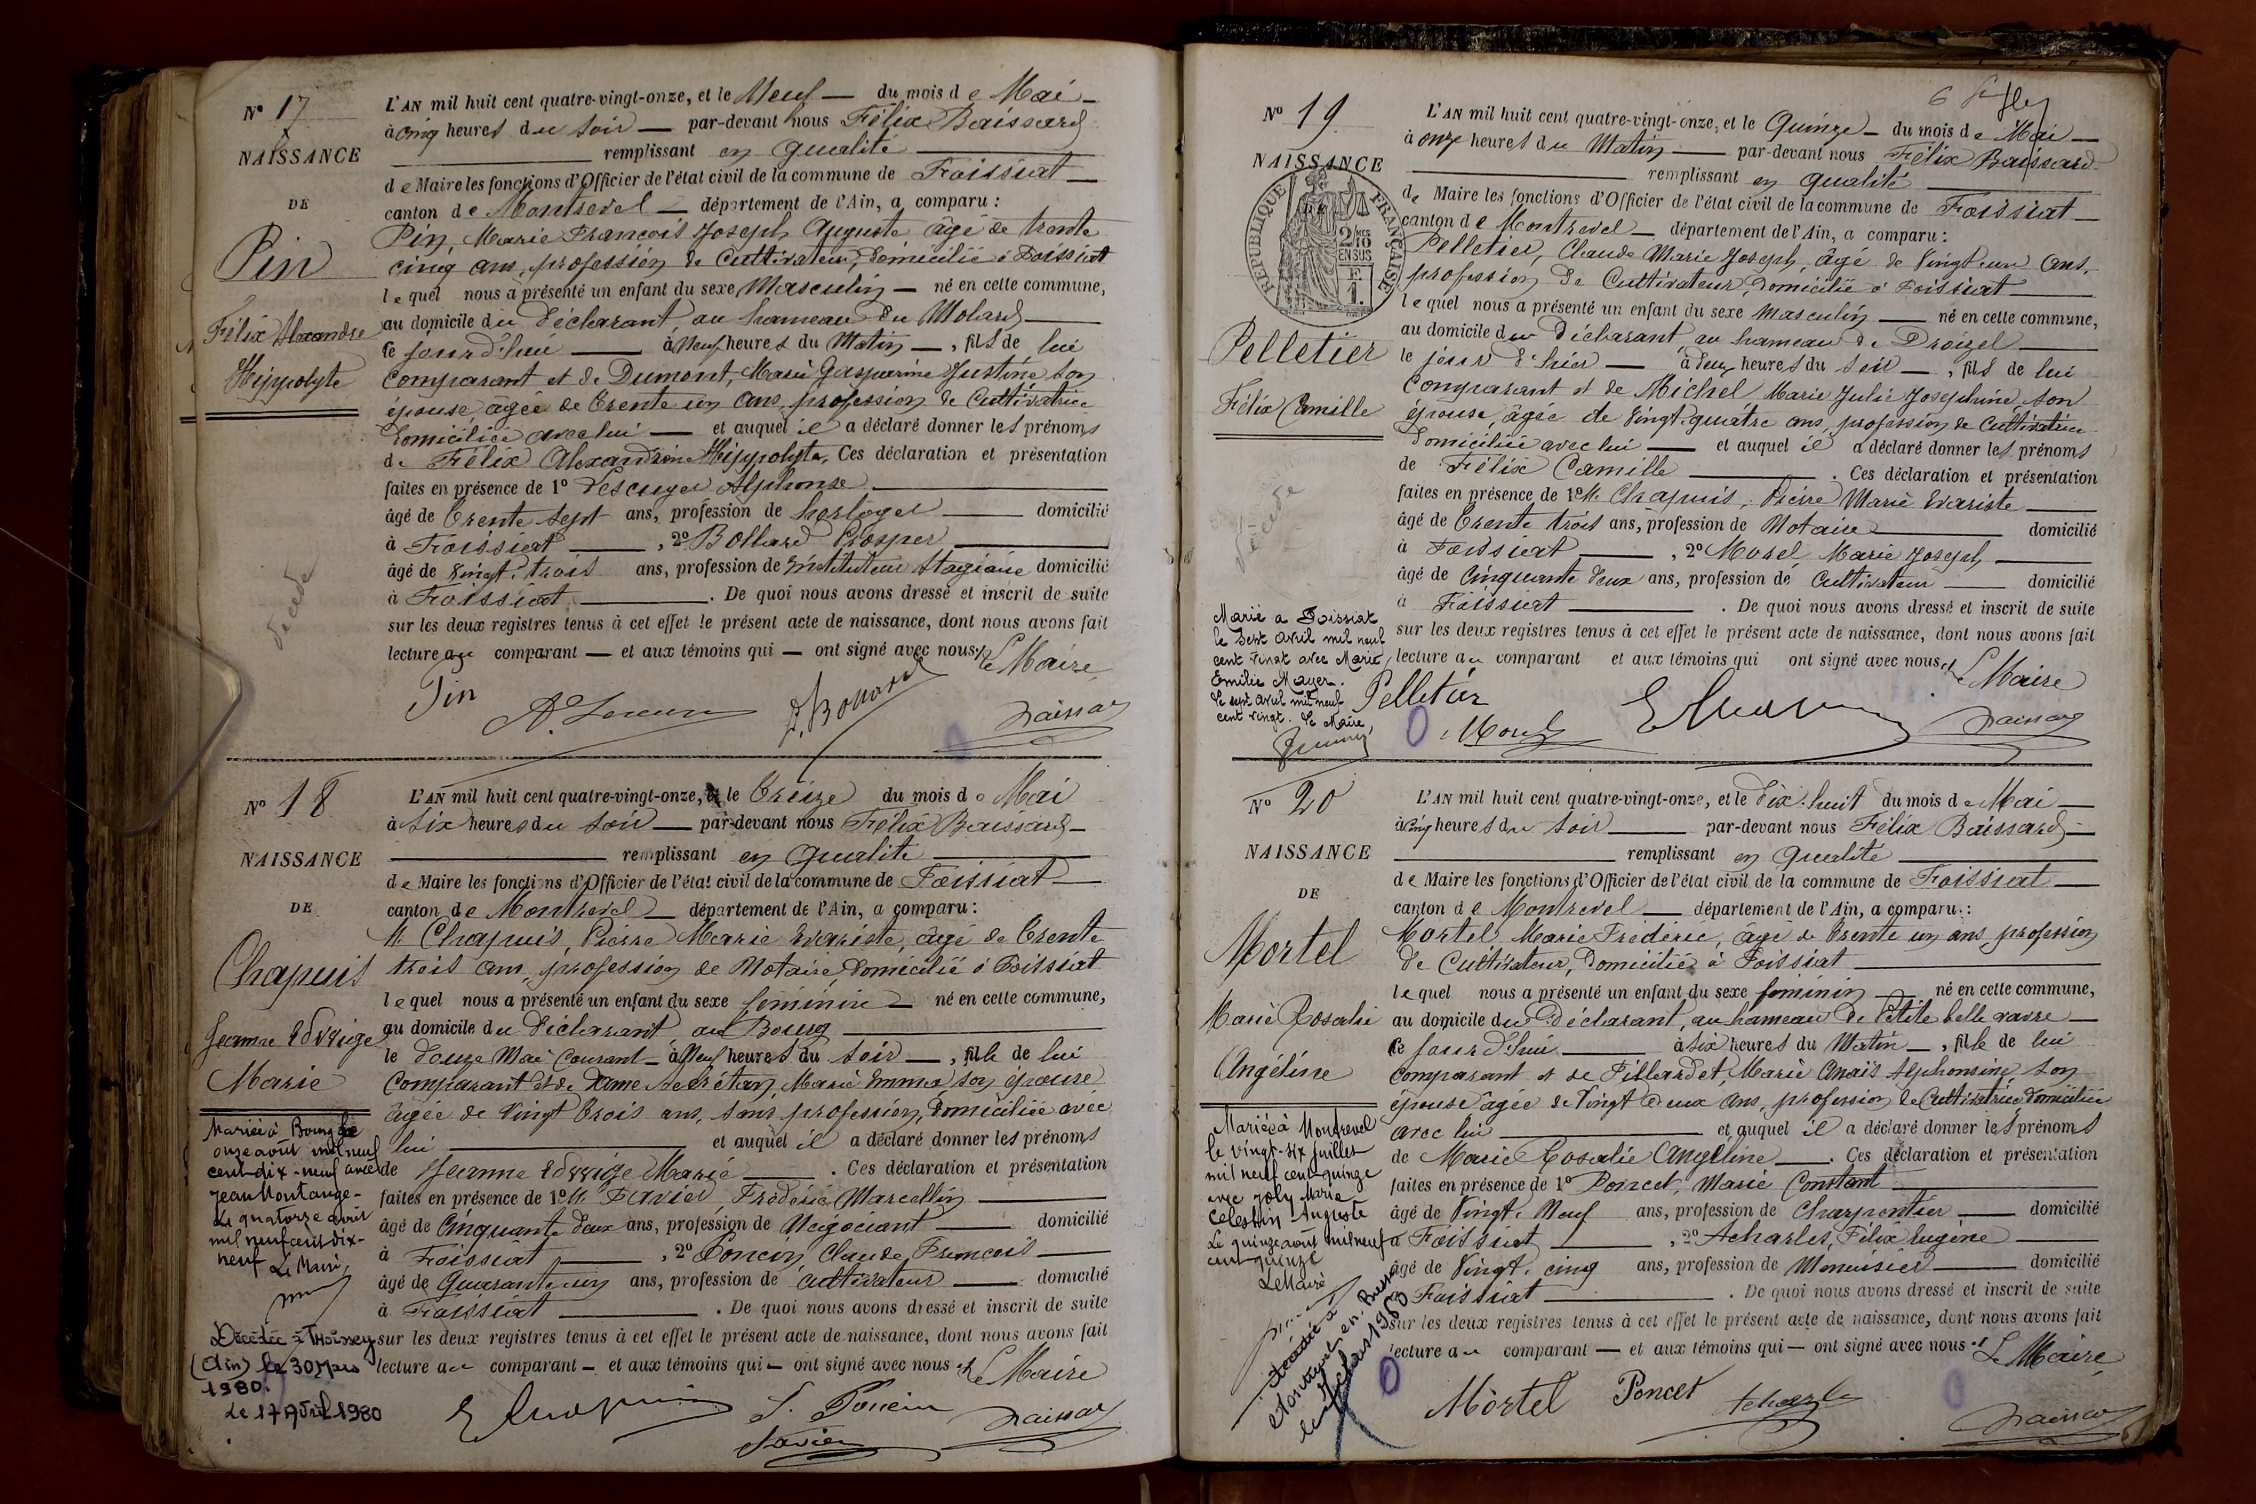 N° 17
NAISSANCE
DE
Pin
Félix Alexandre
Hippolyte
décédé
L'AN mil huit cent quatre-vingt-onze, et le Neuf — du mois de Mai —
à cinq heures du soir — par-devant nous Félix Baissard
remplissant en qualité
de Maire les fonctions d'Officier de l'état civil de la commune de Foissiat —
canton de Montrevel — département de l'Ain, a comparu :
Pin, Marie François Joseph Auguste âgé de trente
cinq ans, profession de Cultivateur, domicilié à Foissiat
lequel nous a présenté un enfant du sexe Masculin — né en cette commune,
au domicile du déclarant, au hameau du Molard
ce jourd'hui — à Neuf heures du Matin —, fils de lui
comparant et de Dumont, Marie Gasparine Justine son
épouse, âgée de trente un ans, profession de Cultivatrice
domiciliée avec lui — et auquel il a déclaré donner les prénoms
de Félix Alexandrine Hippolyte. Ces déclaration et présentation
faites en présence de 1° Alphonse
âgé de trente sept ans, profession de horloger — domicilié
à Foissiat —, 2° Bollard Prosper
âgé de vingt-trois ans, profession de Instituteur stagiaire domicilié
à Foissiat. — De quoi nous avons dressé et inscrit de suite
sur les deux registres tenus à cet effet le présent acte de naissance, dont nous avons fait
lecture au comparant — et aux témoins qui — ont signé avec nous.
Le Maire
Pin
P. Bollard
Baissard
N° 18
NAISSANCE
DE
Chapuis
Jeanne Edwige
Marie
Mariée à Bourg le
onze août mil neuf
cent dix-neuf avec
Jean Montange -
Le quatorze août
mil neuf cent dix-
neuf Le Maire,
Décédée à Thoissey
(Ain) le 30 Mars
1980.
Le 17 Avril 1980
L'AN mil huit cent quatre-vingt-onze, et le treize du mois de Mai
à six heures du soir — par-devant nous Félix Baissard —
remplissant en qualité
de Maire les fonctions d'Officier de l'état civil de la commune de Foissiat —
canton de Montrevel — département de l'Ain, a comparu :
M. Chapuis, Pierre Marie Evariste, âgé de trente
trois ans, profession de Notaire, domicilié à Foissiat
lequel nous a présenté un enfant du sexe féminin — né en cette commune,
au domicile du déclarant, au Bourg
le douze Mai courant — à Neuf heures du soir —, fille de lui
comparant et de Dame Secrétan, Marie Emma, son épouse
âgée de vingt trois ans, sans profession, domiciliée avec
lui — et auquel il a déclaré donner les prénoms
de Jeanne Edwige Marie — . Ces déclaration et présentation
faites en présence de 1° M. Favier, Frédéric Marcellin
âgé de cinquante deux ans, profession de Négociant — domicilié
à Foissiat —, 2° Poncin, Claude François —
âgé de quarante un ans, profession de cultivateur — domicilié
à Foissiat — . De quoi nous avons dressé et inscrit de suite
sur les deux registres tenus à cet effet le présent acte de naissance, dont nous avons fait
lecture au comparant — et aux témoins qui — ont signé avec nous.
Le Maire
E Chapuis
Poncin
Favier
Baissard
N° 19
NAISSANCE
RÉPUBLIQUE FRANÇAISE
2/10 EN SUS
Pelletier
Félix Camille
décédé
Marié à Foissiat
le sept avril mil neuf
cent vingt avec Marie
Emilie Mayer.
Le sept avril mil neuf
cent vingt. Le Maire,
L'AN mil huit cent quatre-vingt-onze, et le Quinze — du mois de Mai —
à onze heures du Matin — par-devant nous Félix Baissard
remplissant en qualité
de Maire les fonctions d'Officier de l'état civil de la commune de Foissiat —
canton de Montrevel — département de l'Ain, a comparu :
Pelletier, Claude Marie Joseph, âgé de vingt-un ans,
profession de Cultivateur, domicilié à Foissiat
lequel nous a présenté un enfant du sexe masculin — né en cette commune,
au domicile du déclarant, au hameau de Droizel
le jour d'hier — à deux heures du soir —, fils de lui
comparant et de Michel Marie Julie Joséphine, son
épouse, âgée de vingt-quatre ans, profession de Cultivatrice
domiciliée avec lui — et auquel il a déclaré donner les prénoms
de Félix Camille — . Ces déclaration et présentation
faites en présence de 1° M. Chapuis, Pierre Marie Evariste
âgé de trente trois ans, profession de Notaire — domicilié
à Foissiat —, 2° Morel, Marie Joseph
âgé de cinquante deux ans, profession de cultivateur — domicilié
à Foissiat — . De quoi nous avons dressé et inscrit de suite
sur les deux registres tenus à cet effet le présent acte de naissance, dont nous avons fait
lecture au comparant et aux témoins qui ont signé avec nous.
Le Maire
Pelletier
Morel
E Chapuis
Baissard
N° 20
NAISSANCE
DE
Mortel
Marie Rosalie
Angéline
Mariée à Montrevel
le vingt-six juillet
mil neuf cent quinze
avec Joly Marie
Célestin Auguste
Le quinze août mil neuf
cent quinze
Le Maire
décédée à
Montrevel-en-Bresse
1980
L'AN mil huit cent quatre-vingt-onze, et le dix-huit du mois de Mai —
à cinq heures du soir — par-devant nous Félix Baissard —
remplissant en qualité
de Maire les fonctions d'Officier de l'état civil de la commune de Foissiat —
canton de Montrevel — département de l'Ain, a comparu :
Mortel Marie Frédéric, âgé de trente un ans, profession
de Cultivateur, domicilié à Foissiat
lequel nous a présenté un enfant du sexe féminin — né en cette commune,
au domicile du déclarant, au hameau de Petite bellevavre —
ce jourd'hui — à six heures du Matin —, fille de lui
comparant et de Fillardet, Marie Anaïs Alphonsine, son
épouse âgée de vingt deux ans, profession de Cultivatrice domiciliée
avec lui — et auquel il a déclaré donner les prénoms
de Marie Rosalie Angéline — . Ces déclaration et présentation
faites en présence de 1° Poncet, Marie Constant
âgé de vingt-neuf ans, profession de Charpentier — domicilié
à Foissiat —, 2° Acharles, Félix Eugène
âgé de vingt-cinq ans, profession de Menuisier — domicilié
à Foissiat — . De quoi nous avons dressé et inscrit de suite
sur les deux registres tenus à cet effet le présent acte de naissance, dont nous avons fait
lecture au comparant — et aux témoins qui — ont signé avec nous.
Le Maire
Mortel
Poncet
Acharles
Baissard